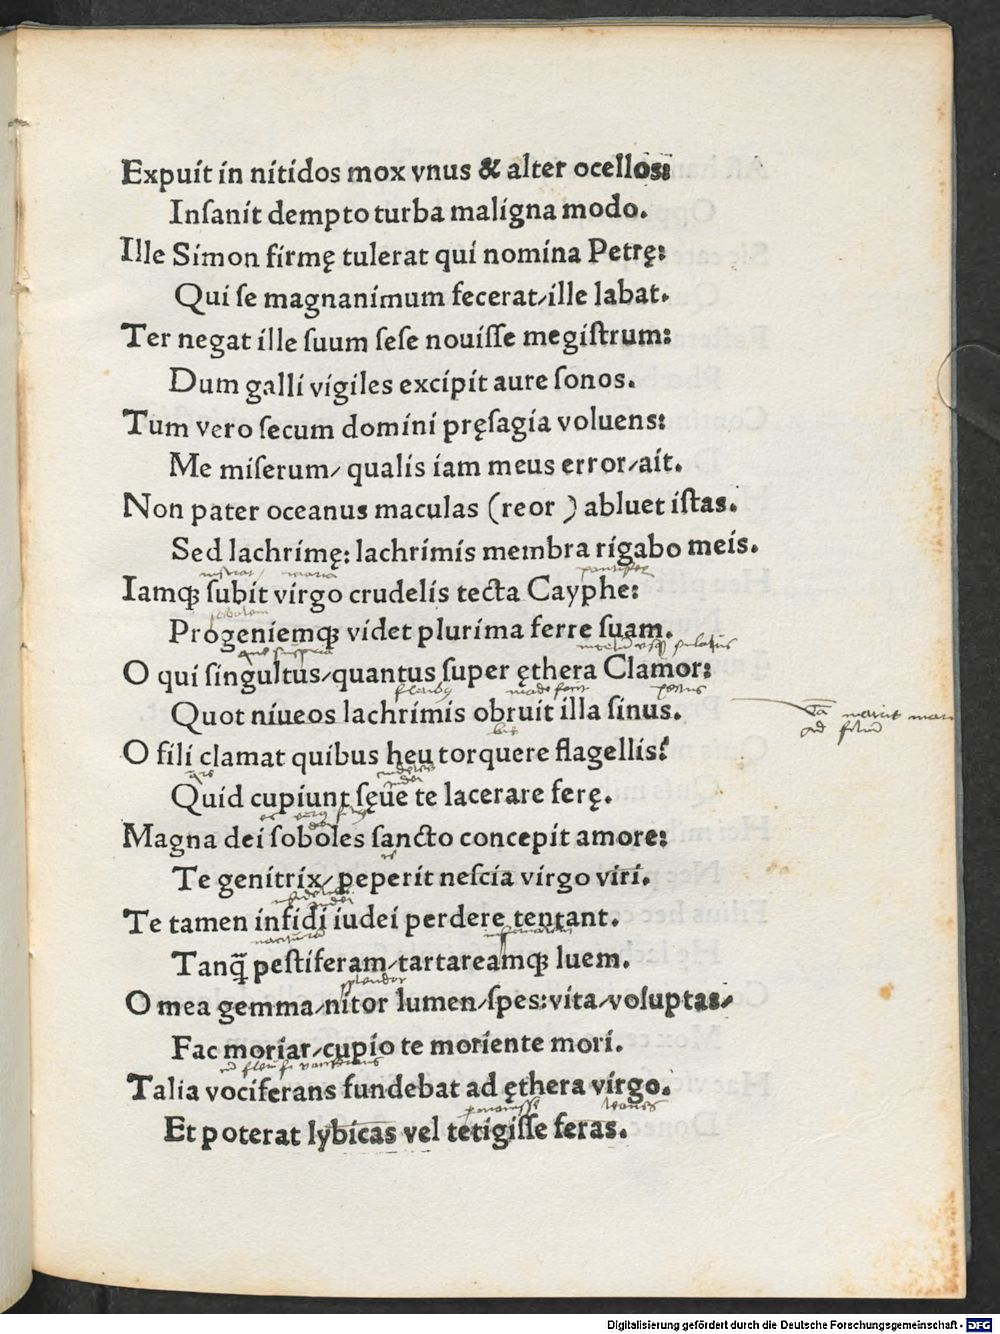 Expuit in nitidos mox vnus & alter ocellos:
Inſanit dempto turba maligna modo.
Ille Simon firmę tulerat qui nomina Petrę:
Qui ſe magnanimum fecerat/ille labat.
Ter negat ille ſuum ſeſe nouiſſe megiſtrum:
Dum galli vigiles excipit aure ſonos.
Tum vero ſecum domini pręſagia voluens:
Me miſerum/ qualis iam meus error/ait.
Non pater oceanus maculas (reor ) abluet iſtas.
Sed lachrimę: lachrimis membra rigabo meis.
maria pontifex
Iamꝗ ſubit virgo crudelis tecta Cayphe:
Progeniemꝗ videt plurima ferre ſuam.
O qui ſingultus/quantus ſuper ęthera Clamor:
pectus
Quot niueos lachrimis obruit illa ſinus.
ad filiū
O fili clamat quibus heu torquere flagellis:
Quid cupiunt ſęue te lacerare ferę.
Magna dei ſoboles ſancto concepit amore:
Te genitrix/ peperit neſcia virgo viri.
Te tamen infidi iudei perdere tentant.
Tanq̃ peſtiferam/tartareamꝗ luem.
splendor
O mea gemma/nitor lumen/ſpes:vita/voluptas/
Fac moriar/cupio te moriente mori.
Talia vociferans fundebat ad ęthera virgo.
leones
Et poterat lybicas vel tetigiſſe feras.
Digitalisierung gefördert durch die Deutsche Forschungsgemeinschaft - DFG